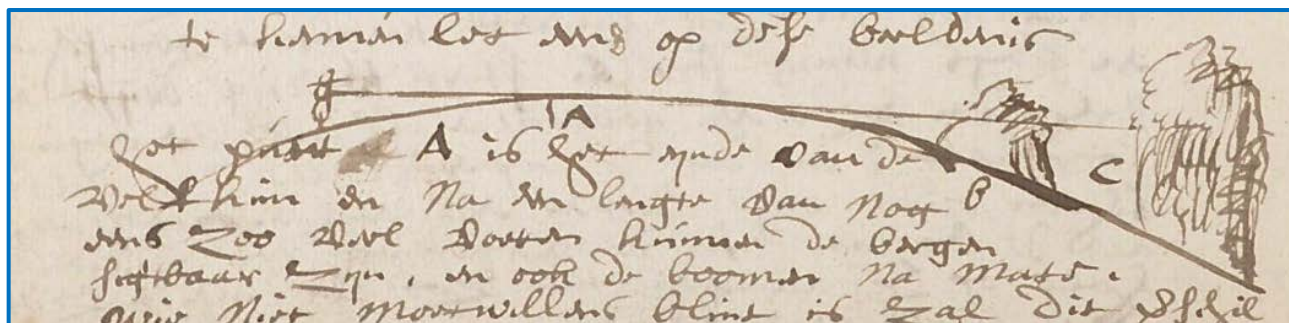 te komen let eens op dese beeldenis
A
Het punt A is het eynde van de
C
Welk kim en Na een lengte van Nog b
eens zoo veel voeten kunnen de bergen
sigtbaar zyn, en ook de boomen Na mate.
wie Niet moetwillens blint is zal dit